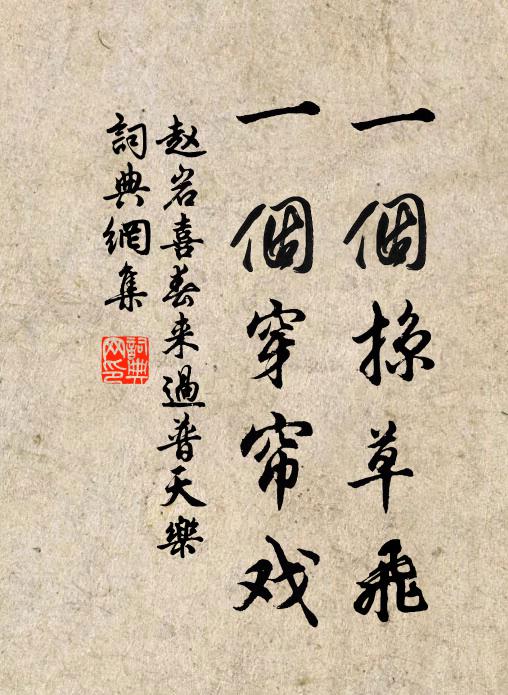 一個掠草飛
一個穿帘戏
赵岩喜春来過普天樂
詞典網集
詞典
网印